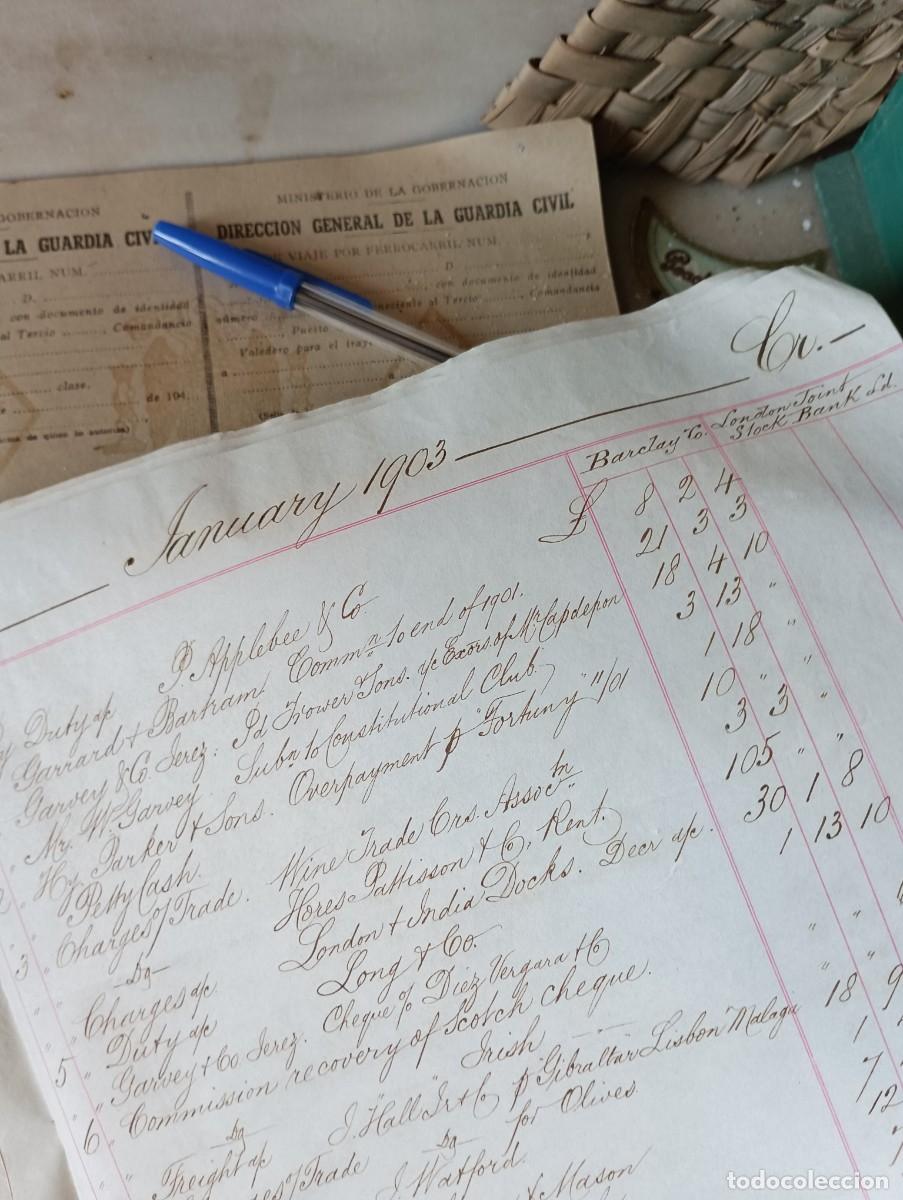 GOBERNACION
LA GUARDIA CIV
ARRIL NUM.
D.
con documento de identidad
al Tercio Comandancia
clase.
de 104
MINISTERIO DE LA GOBERNACION
DIRECCION GENERAL DE LA GUARDIA CIVIL
DE VIAJE POR FERROCARRIL NUM.
D.
con documento de identidad
número al Tercio Comandancia
Puesto
Valedero para el tray
a
January 1903 Cr.
Barclay Co. London Joint Stock Bank Ld.
Duty a/c P. Applebee & Co. £ 8 2 4
Garrard & Bartram Commn to end of 1901. 21 3 3
Garvey & Co. Jerez. Pd Trower & Sons. a/c Exors. of Mr. Capdepon 18 4 10
Mr. Wm. Garvey. Subn to Constitutional Club. 3 13 "
Hy. Parker & Sons. Overpayment p "Fortuny" 11/01 1 18 "
Petty Cash. 10 " "
3 " Charges of Trade. Wine Trade Crs. Assoctn 3 3 "
" " -Do- Hores Pattisson & Co, Rent. 105 " "
" " Charges a/c London & India Docks. Decr a/c. 30 1 8
" " Duty a/c Long & Co. 1 13 10
5 " Garvey & Co Jerez. Cheque o/o Diez Vergara & Co
6 " Commission recovery of Scotch cheque.
" " Do " Irish
" " Freight a/c J. Hall Jr & Co p "Gibraltar" "Lisbon" Malaga 18 9
Charges of Trade Do for Olives
J. Watford.
& Mason
todocoleccion